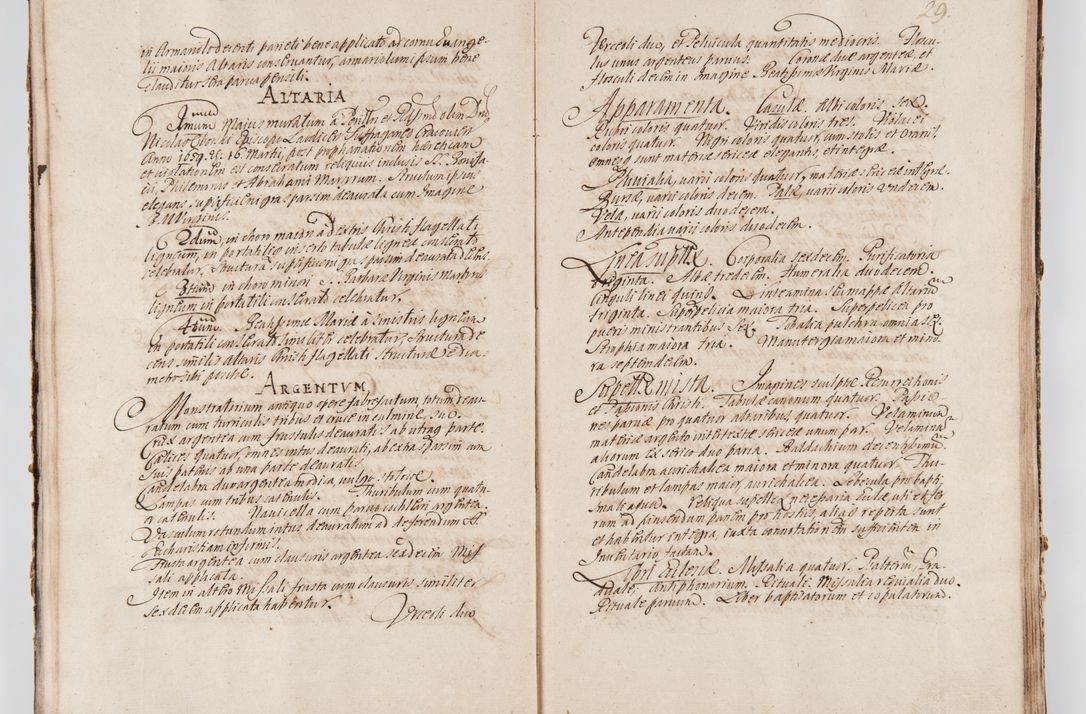 in Armariolo decenti parieti bene applicato ad cornu Evange-
lii maioris Altaris conservantur, armariolum ipsum bene
clauditur sera parva pensili.
ALTARIA
Imum Maius muratum a Perill: et Rssmo olim Dno
Nicolao Episcopo Laodicen: Suffraganeo Cracovien:
Anno 1659. die 16 Martii, post prophanationem hæreticam
et violationem est consecratum reliquiis inclusis SS. Bonifa-
cii, Philemonis et Abrahami Martyrum. Structura ipsius
elegans super fixi nigra sparsim deaurata cum Imagine
B. M. Virginis.
2dum, in choro maiori à dextris Christi flagellati
ligneum, in portatili inserto tabulæ ligneæ consecrato
celebratur, structura
3tium in choro minori S. Barbaræ Virginis Martyris
ligneum in portatili consecrato celebratur.
4tum. Beatissimæ Mariæ à sinistris ligneum
in portatili consecrato similiter celebratur, structura de-
cens similis altaris Christi flagellati structuræ e dia-
metro sibi positæ.
ARGENTVM
Monstratorium antiquo opere fabrefactum, totum deau-
ratum cum turriculis tribus et cruce in culmine suo.
Crux argentea cum frustulis deauratis ab utraq parte.
Calices quatuor, omnes intus deaurati, ab extra sparsim cum
suis patenis ab una parte deauratis.
Candelabra duo argentea modica, vulgo stolowe.
Lampas cum tribus catenulis. Thuribulum cum quatu-
or catenulis. Navicella cum parvo cochleari argentea.
Vasculum rotundum intus deauratum ad deferendum SS.
Eucharistiam infirmis.
Frusta argentea cum clausuris argentea sexdecim Mis-
sali applicata.
Item in altero Missali frusta cum clausuris similiter
sexdecim applicata habentur.
Urceoli duo
29.
Urceoli duo, et Pelvicula quantitatis mediocris. Floscu-
lus unus argenteus parvus. Coronæ duæ argenteæ, et
flosculi decem in Imagine Beatissimæ Virginis Mariæ.
Apparamenta. Casulæ Albi coloris sex.
Rubri coloris quatuor. Viridis coloris tres. Violacei
coloris quatuor. Nigri coloris quatuor, cum stolis et
omnes sunt materiæ sericeæ elegantis, et integræ.
Pluvialia, varii coloris quatuor, materiæ sericeæ integræ.
Bursæ, varii coloris decem. Pallæ, varii coloris undecem.
Vela, varii coloris duodecem.
Antependia varii coloris duodecem.
Lintea supellex. Corporalia sexdecim. Purificatoria
triginta. Albæ tredecim. Humeralia duodecem.
Cinguli linei quinq. Linteamina seu mappæ Altarium
triginta. Superpelicia maiora tria. Superpelicea pro
pueris ministrantibus sex. Tobalia pulchra omnia sex.
Strophia maiora tria. Manutergia maiora et mino-
ra septendecim.
Supellex mixta. Imagines sculptæ Resurrectionis
et Passionis Christi. Tabulæ canonum quatuor. Passio-
nes parvæ pro quatuor altaribus quatuor. Velaminum
materiæ argento intertextæ sericeæ unum par. Velaminum
aliorum ex serico duo paria. Baldachium decentissimum.
Candelabra aurichalcea maiora et minora quatuor. Thu-
ribulum et lampas maior, aurichalcea. Lebecula pro bapti-
smali aqua. Reliqua supellex necessaria Ecclesiæ uti et fer-
rum ad pinsendum panem pro hostiis, alias reperta sunt
et habentur integra, iuxta connotationem sufficientem in
Inventario factam.
Libri Ecclesiæ. Missalia quatuor. Psalterium, Gra-
duale, Antiphonarium. Rituali. Missalia requialia duo.
Rituale parvum. Liber baptisatorum et copulatorum.